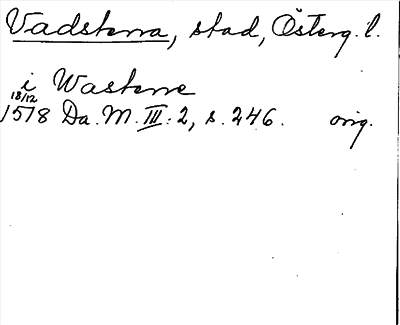 Vadstena, stad, Österg. l.
i Wastene
18/12
1518 Da. M. III: 2, s. 246. orig.